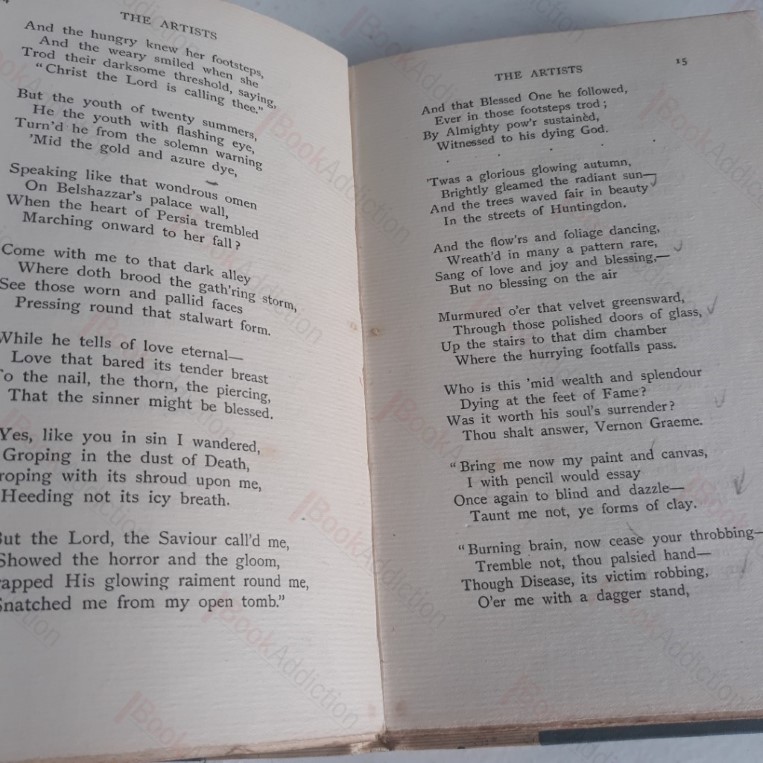 THE ARTISTS
And the hungry knew her footsteps,
And the weary smiled when she
Trod their darksome threshold, saying,
"Christ the Lord is calling thee."
But the youth of twenty summers,
He the youth with flashing eye,
Turn'd he from the solemn warning
'Mid the gold and azure dye,
Speaking like that wondrous omen
On Belshazzar's palace wall,
When the heart of Persia trembled
Marching onward to her fall?
Come with me to that dark alley
Where doth brood the gath'ring storm,
See those worn and pallid faces
Pressing round that stalwart form.
While he tells of love eternal—
Love that bared its tender breast
To the nail, the thorn, the piercing,
That the sinner might be blessed.
Yes, like you in sin I wandered,
Groping in the dust of Death,
roping with its shroud upon me,
Heeding not its icy breath.
But the Lord, the Saviour call'd me,
Showed the horror and the gloom,
rapped His glowing raiment round me,
Snatched me from my open tomb."
THE ARTISTS 15
And that Blessed One he followed,
Ever in those footsteps trod;
By Almighty pow'r sustainèd,
Witnessed to his dying God.
'Twas a glorious glowing autumn,
Brightly gleamed the radiant sun—
And the trees waved fair in beauty
In the streets of Huntingdon.
And the flow'rs and foliage dancing,
Wreath'd in many a pattern rare,
Sang of love and joy and blessing,—
But no blessing on the air
Murmured o'er that velvet greensward,
Through those polished doors of glass,
Up the stairs to that dim chamber
Where the hurrying footfalls pass.
Who is this 'mid wealth and splendour
Dying at the feet of Fame?
Was it worth his soul's surrender?
Thou shalt answer, Vernon Graeme.
"Bring me now my paint and canvas,
I with pencil would essay
Once again to blind and dazzle—
Taunt me not, ye forms of clay.
"Burning brain, now cease your throbbing—
Tremble not, thou palsied hand—
Though Disease, its victim robbing,
O'er me with a dagger stand,